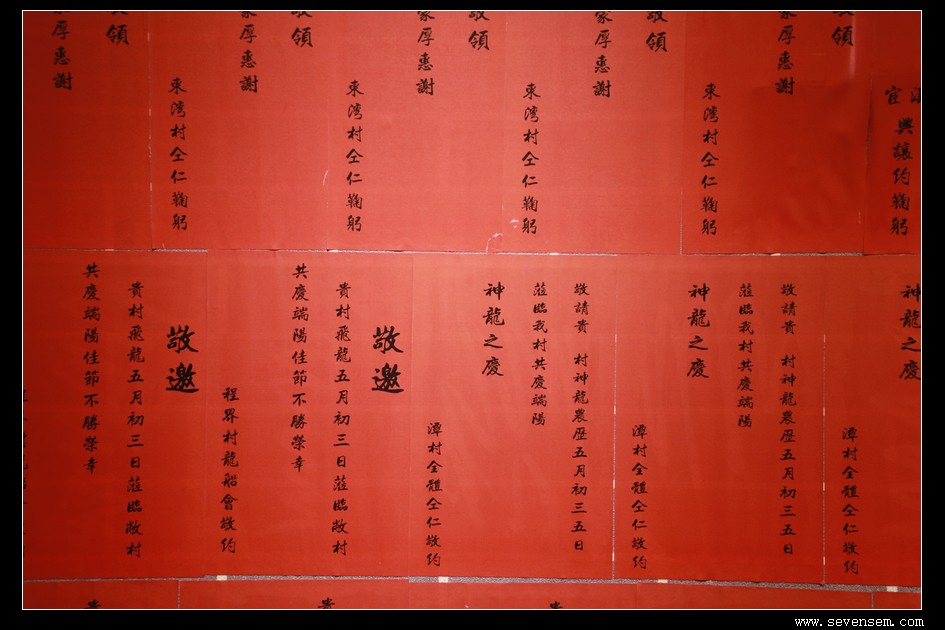 領
厚惠謝
東灣村仝仁鞠躬
領
厚惠謝
東灣村仝仁鞠躬
領
厚惠謝
東灣村仝仁鞠躬
領
厚惠謝
東灣村仝仁鞠躬
領
厚惠謝
宜興讓約鞠躬
神龍之慶
潭村全體仝仁敬約
敬請貴 村神龍農歷五月初三五日
蒞臨我村共慶端陽
神龍之慶
潭村全體仝仁敬約
敬請貴 村神龍農歷五月初三五日
蒞臨我村共慶端陽
神龍之慶
潭村全體仝仁敬約
敬邀
貴村飛龍五月初三日蒞臨敝村
共慶端陽佳節不勝榮幸
程界村龍船會敬約
敬邀
貴村飛龍五月初三日蒞臨敝村
共慶端陽佳節不勝榮幸
貴
貴
貴
www.sevensem.com